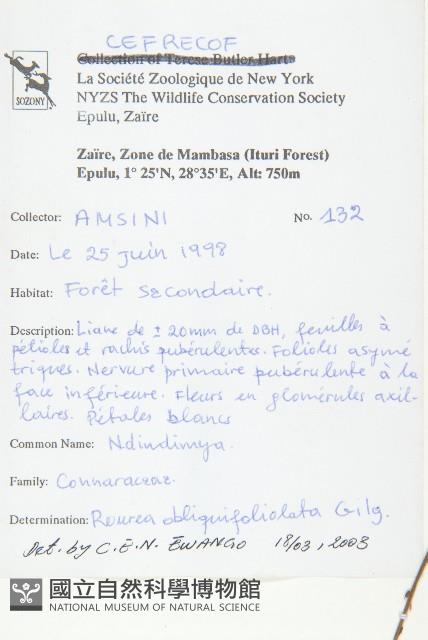 CEFRECOF
Collection of Terese Butler Hart
La Société Zoologique de New York
NYZS The Wildlife Conservation Society
Epulu, Zaïre
SOZONY
Zaïre, Zone de Mambasa (Ituri Forest)
Epulu, 1° 25'N, 28°35'E, Alt: 750m
Collector: AMSINI No. 132
Date: Le 25 juin 1998
Habitat: Forêt secondaire.
Description: Liane de ± 20mm de DBH, feuilles à
pétioles et rachis pubérulentes. Folioles asymé
triques. Nervure primaire pubérulente à la
face inférieure. Fleurs en glomérules axil-
laires. Pétales blancs
Common Name: Ndindimya.
Family: Connaraceae.
Determination: Rourea obliquifoliolata Gilg.
Det. by C.E.N. EWANGO 18/03, 2003
國立自然科學博物館
NATIONAL MUSEUM OF NATURAL SCIENCE